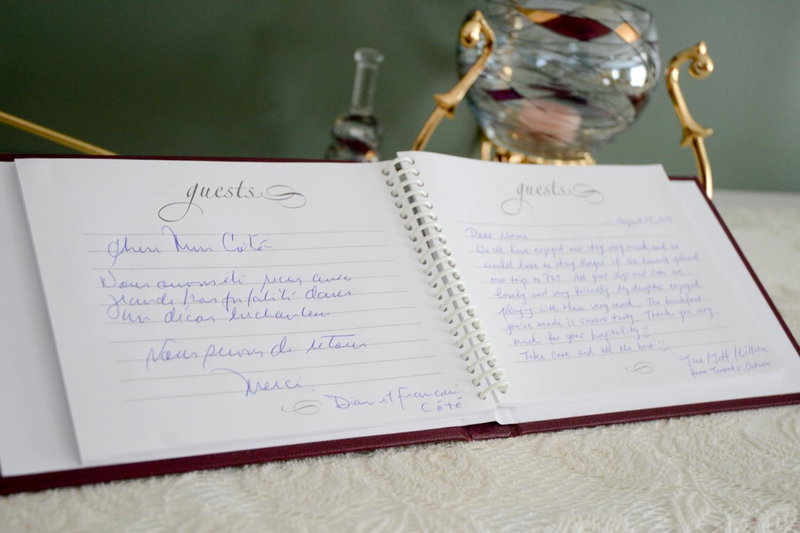 guests
Mme Côté
Nous avons été reçus avec
grande hospitalité dans
un décor enchanteur
Nous serons de retour
Merci.
Dian et François
Côté
guests
August
Dear Norma,
We all have enjoyed our stay very much and we
would love to stay longer if we haven't planed
our trip to PEI. All your dogs and cats are
lovely and very friendly. My daughter enjoyed
playing with them very much. The breakfast
you've made is so yummy. Thank you very
much for your hospitality!!
Take care and all the best!!
/Jeff/Lillian
from Toronto, Ontario